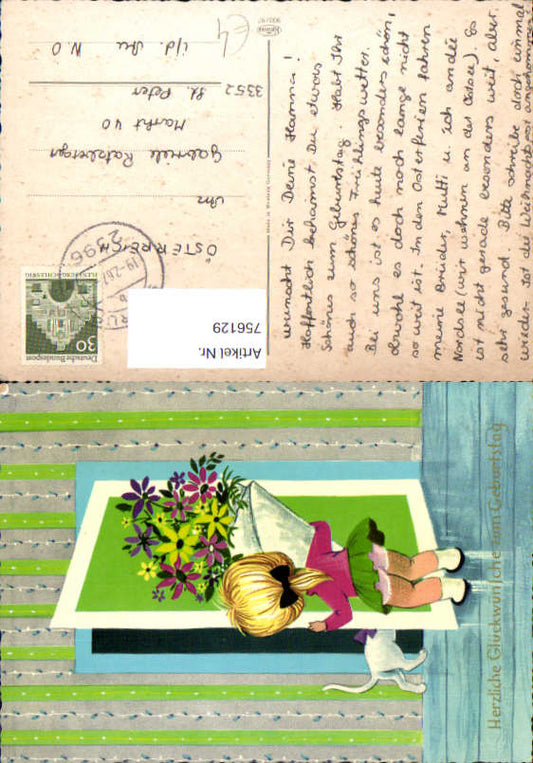 wünscht Dir Deine Hanna!
Hoffentlich bekommst Du etwas
Schönes zum Geburtstag. Habt Ihr
auch so schönes Frühlingswetter.
Bei uns ist es heute besonders schön,
obwohl es doch noch lange nicht
so weit ist. In den Osterferien fahren
meine Brüder, Mutti u. ich an die
Nordsee (wir wohnen an der Ostsee). Es
ist nicht gerade besonders weit, aber
sehr gesund. Bitte schreibe doch einmal
wieder. Ist die Weihnachtspost angekommen?
ÖSTERREICH
Gabriele
Markt 40
3352 St. Peter
i/d Au N.Ö
€4
2396
30
Deutsche Bundespost
FLENSBURG/SCHLESWIG
Artikel Nr.
756129
Herzliche Glückwünsche zum Geburtstag